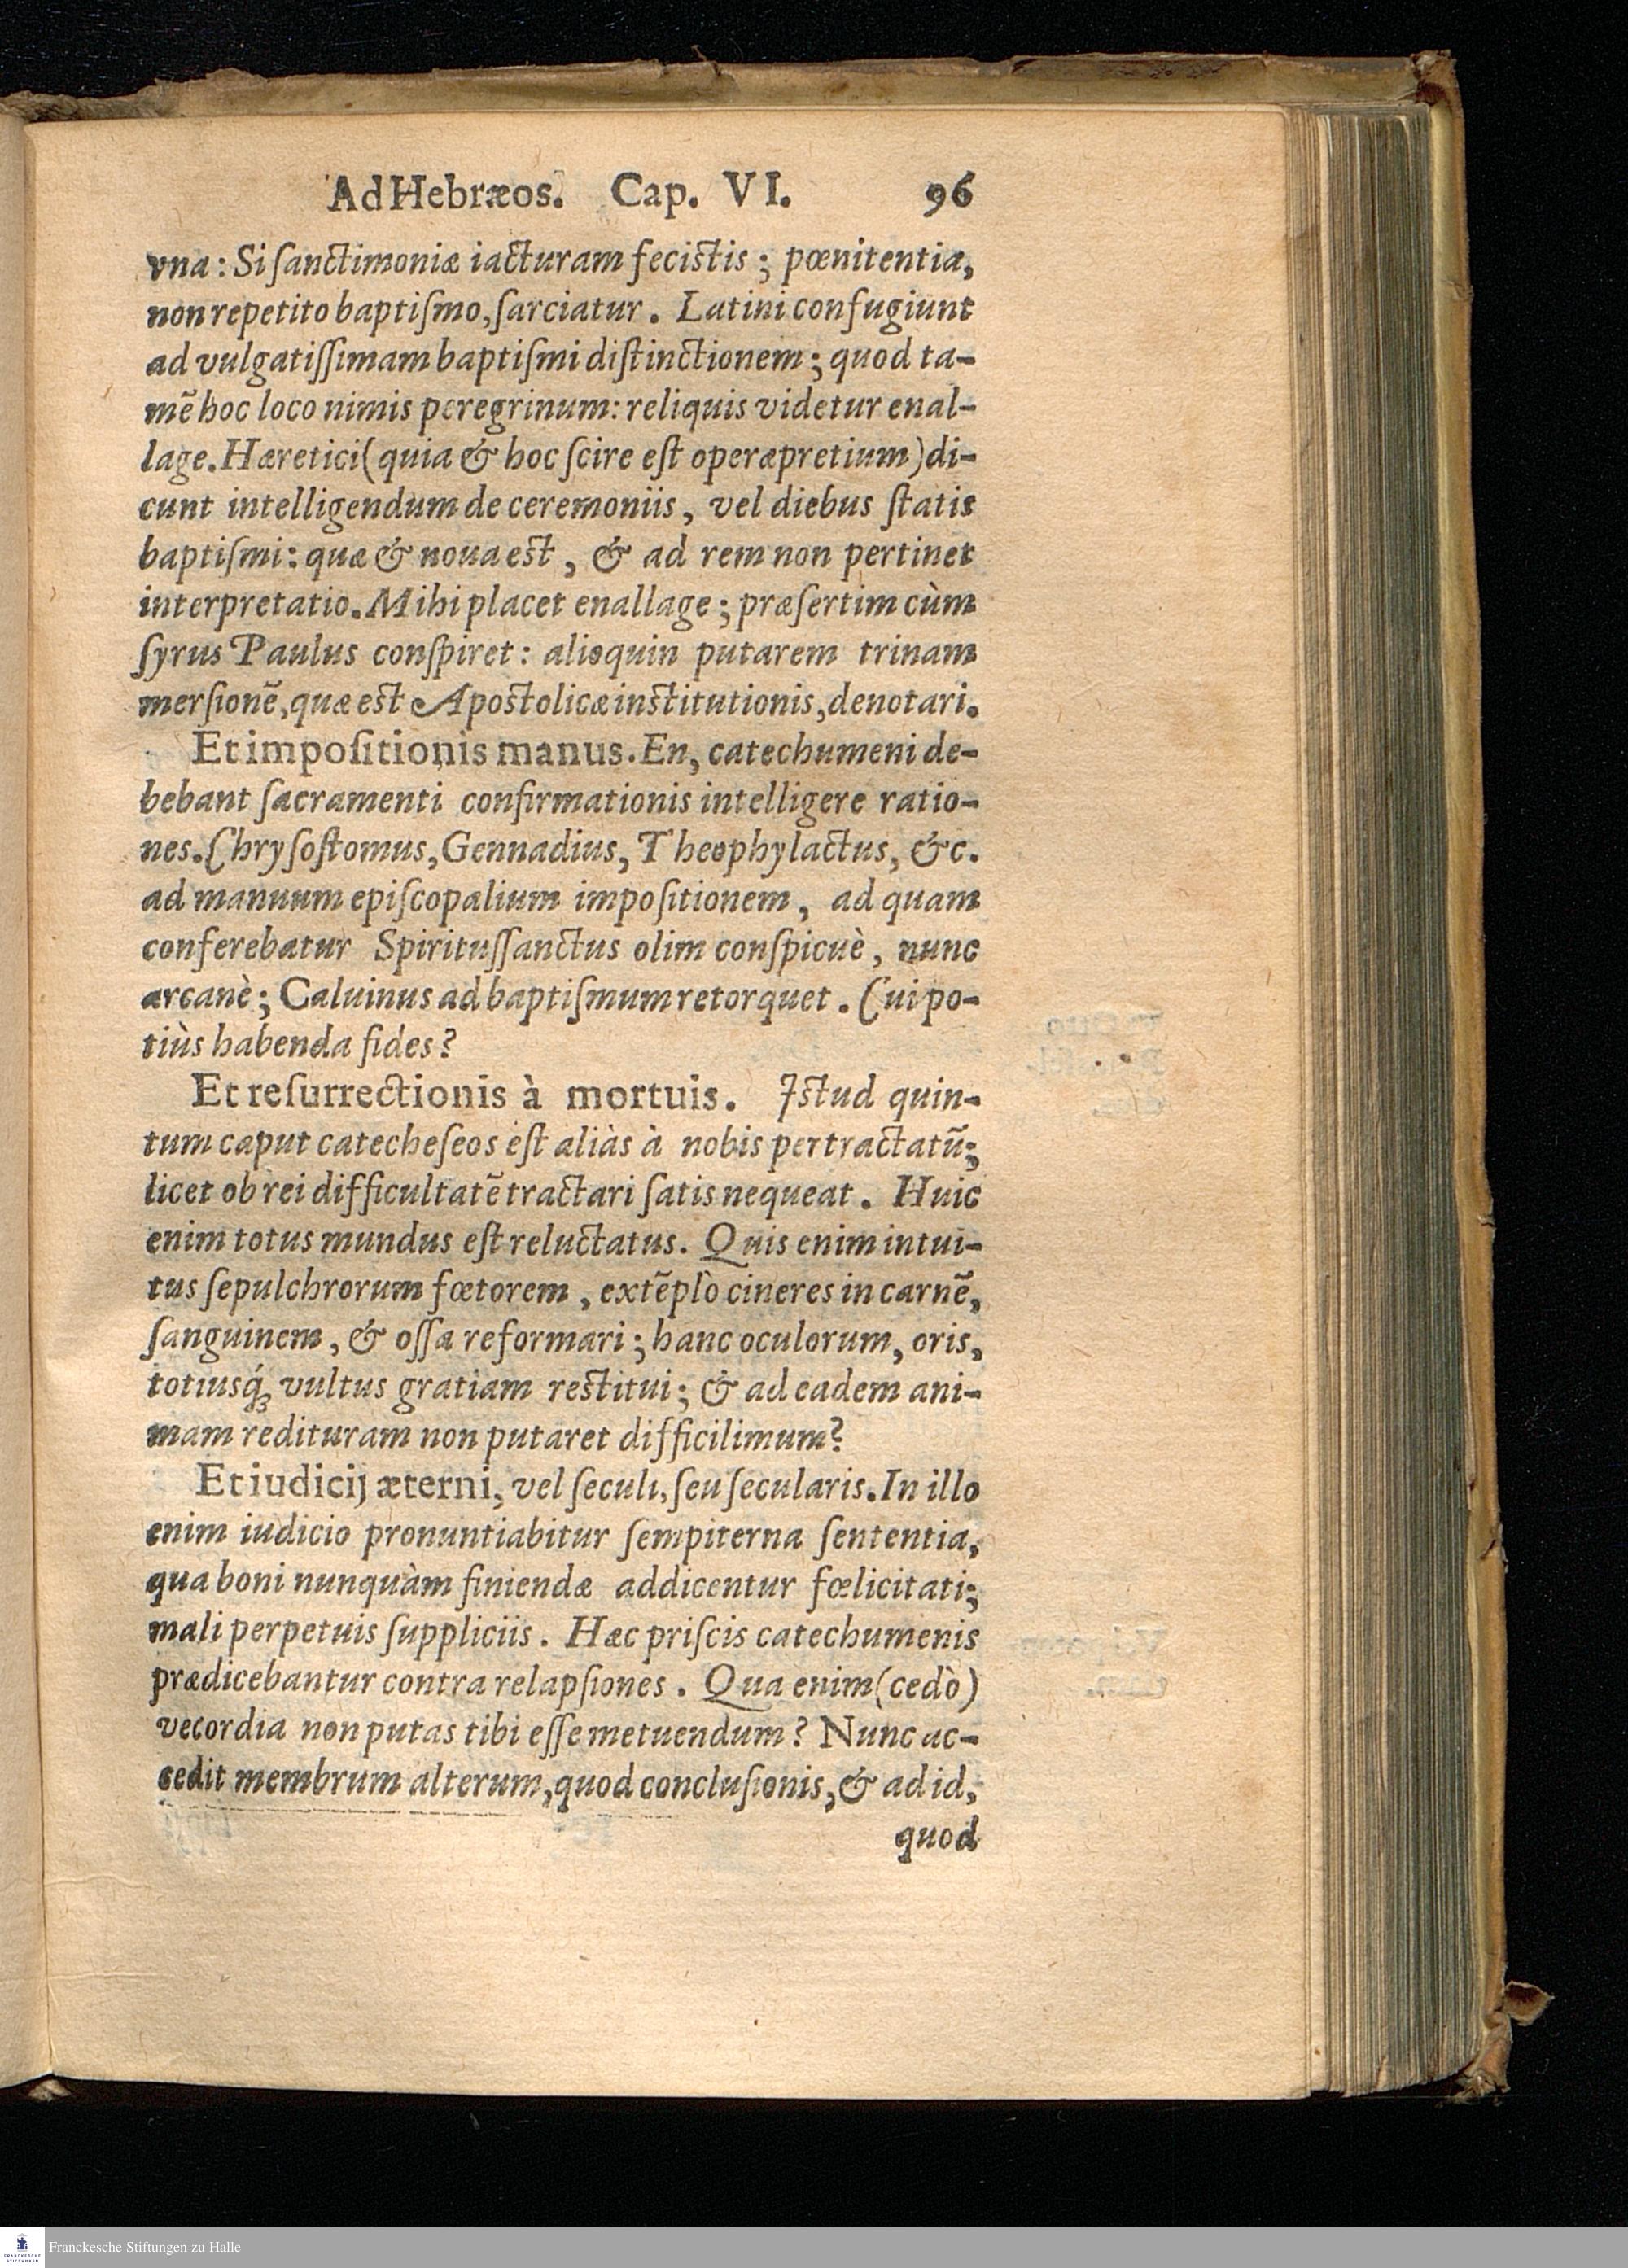 Ad Hebræos. Cap. VI. 96
vna: Si ſanctimoniæ iacturam feciſtis; pœnitentia,
non repetito baptiſmo, ſarciatur. Latini confugiunt
ad vulgatiſſimam baptiſmi diſtinctionem; quod ta-
mẽ hoc loco nimis peregrinum: reliquis videtur enal-
lage. Hæretici (quia & hoc ſcire eſt operæpretium) di-
cunt intelligendum de ceremoniis, vel diebus ſtatis
baptiſmi: quæ & noua eſt, & ad rem non pertinet
interpretatio. Mihi placet enallage; præſertim cùm
ſyrus Paulus conſpiret: alioquin putarem trinam
merſionẽ, quæ eſt Apoſtolicæ inſtitutionis, denotari.
Et impoſitionis manus. En, catechumeni de-
bebant ſacramenti confirmationis intelligere ratio-
nes. Chryſoſtomus, Gennadius, Theophylactus, &c.
ad manuum epiſcopalium impoſitionem, ad quam
conferebatur Spirituſſanctus olim conſpicuè, nunc
arcanè; Caluinus ad baptiſmum retorquet. Cui po-
tiùs habenda fides?
Et reſurrectionis à mortuis. Iſtud quin-
tum caput catecheſeos eſt aliàs à nobis pertractatũ;
licet ob rei difficultatẽ tractari ſatis nequeat. Huic
enim totus mundus eſt reluctatus. Quis enim intui-
tus ſepulchrorum fœtorem, extẽplò cineres in carnẽ,
ſanguinem, & oſſa reformari; hanc oculorum, oris,
totiusq́ꝫ vultus gratiam reſtitui; & ad eadem ani-
mam redituram non putaret difficilimum?
Et iudicij æterni, vel ſeculi, ſeu ſecularis. In illo
enim iudicio pronuntiabitur ſempiterna ſententia,
qua boni nunquàm finiendæ addicentur fœlicitati;
mali perpetuis ſuppliciis. Hæc priſcis catechumenis
prædicebantur contra relapſiones. Qua enim (cedò)
vecordia non putas tibi eſſe metuendum? Nunc ac-
cedit membrum alterum, quod concluſionis, & ad id,
quod
Franckesche Stiftungen zu Halle